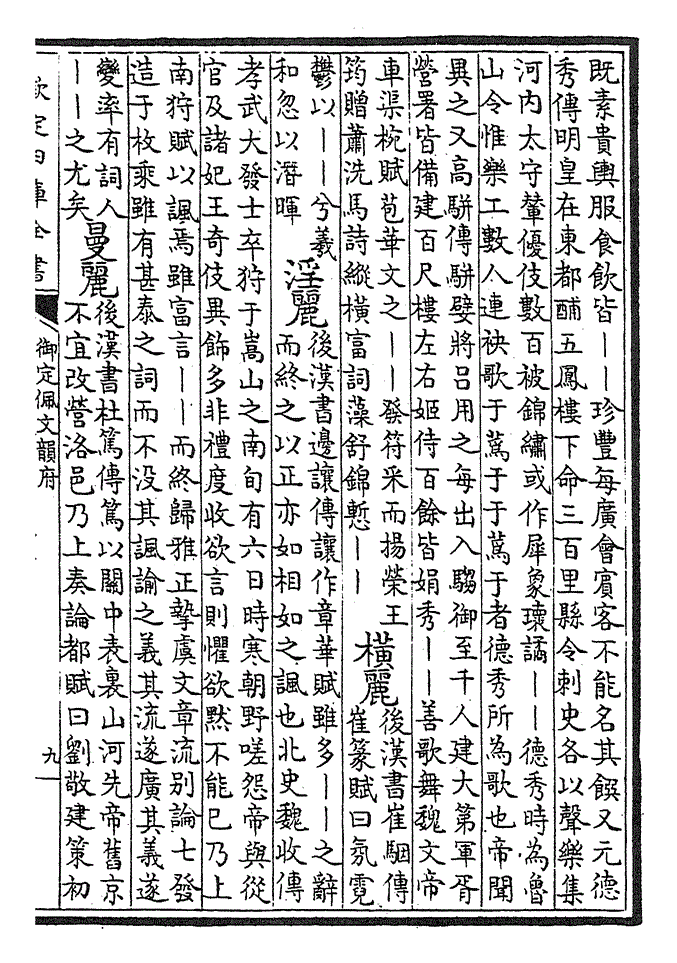 既素貴輿服食飲皆——珍豐每廣會賓客不能名其饌又元德
秀傳明皇在東都酺五鳳樓下命三百里縣令刺史各以聲樂集
河内太守輦優伎數百被錦繡或作犀象瓌譎——德秀時為魯
山令惟樂工數人連袂歌于蒍于于蒍于者德秀所為歌也帝聞
異之又高駢傳駢嬖將吕用之每出入騶御至千人建大第軍胥
營署皆備建百尺樓左右姬侍百餘皆娟秀——善歌舞魏文帝
車渠椀賦苞華文之——發符采而揚榮王
筠贈蕭洗馬詩縱橫富詞藻舒錦慙——
橫麗
後漢書崔駰傳
崔篆賦曰氛霓
鬱以——兮羲
和忽以潛暉
淫麗
後漢書邊讓傳讓作章華賦雖多——之辭
而終之以正亦如相如之諷也北史魏收傳
孝武大發士卒狩于嵩山之南旬有六日時寒朝野嗟怨帝與從
官及諸妃王奇伎異飾多非禮度收欲言則懼欲默不能已乃上
南狩賦以諷焉雖富言——而終歸雅正摯虞文章流别論七發
造于枚乘雖有甚泰之詞而不没其諷諭之義其流遂廣其義遂
變率有詞人
——之尤矣
曼麗
後漢書杜篤傳篤以關中表裏山河先帝舊京
不宜改營洛邑乃上奏論都賦曰劉敬建策初
欽定四庫全書
御定佩文韻府
九